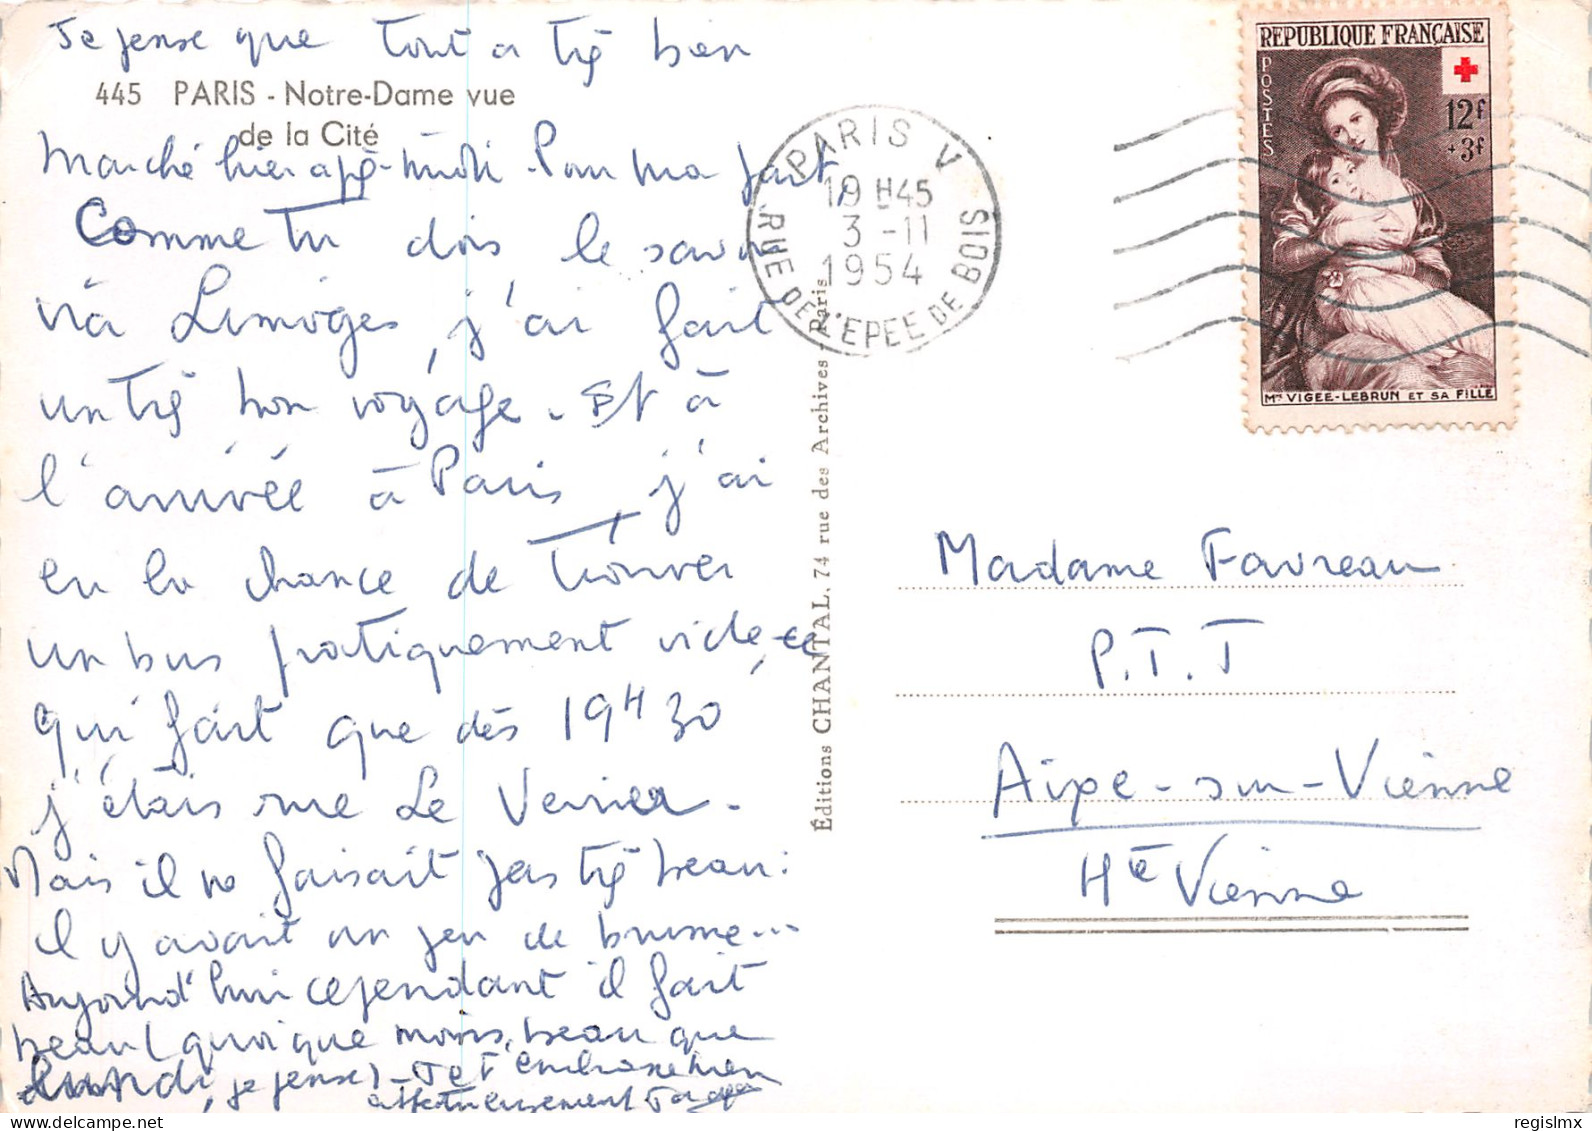 Je pense que tout a très bien
445 PARIS - Notre-Dame vue
de la Cité
Marché hier après-midi. Pour ma part,
Comme tu dois le savoir
via Limoges, j'ai fait
un très bon voyage. Et à
l'arrivée à Paris, j'ai
eu la chance de trouver
un bus pratiquement vide, ce
qui fait que dès 19H30
j'étais rue Le Verrier.
Mais il ne faisait pas très beau :
il y avait un peu de brume...
Aujourd'hui cependant il fait
beau (quoique moins beau que
lundi, je pense) - Je t'embrasse bien
affectueusement
Éditions CHANTAL, 74 rue des Archives - Paris
PARIS V
19H45
3 -11
1954
RUE DE L'EPEE DE BOIS
REPUBLIQUE FRANÇAISE
POSTES
12f
+3f
Me VIGEE-LEBRUN ET SA FILLE
Madame Favreau
P.T.T
Aixe-sur-Vienne
Hte Vienne
regislmx